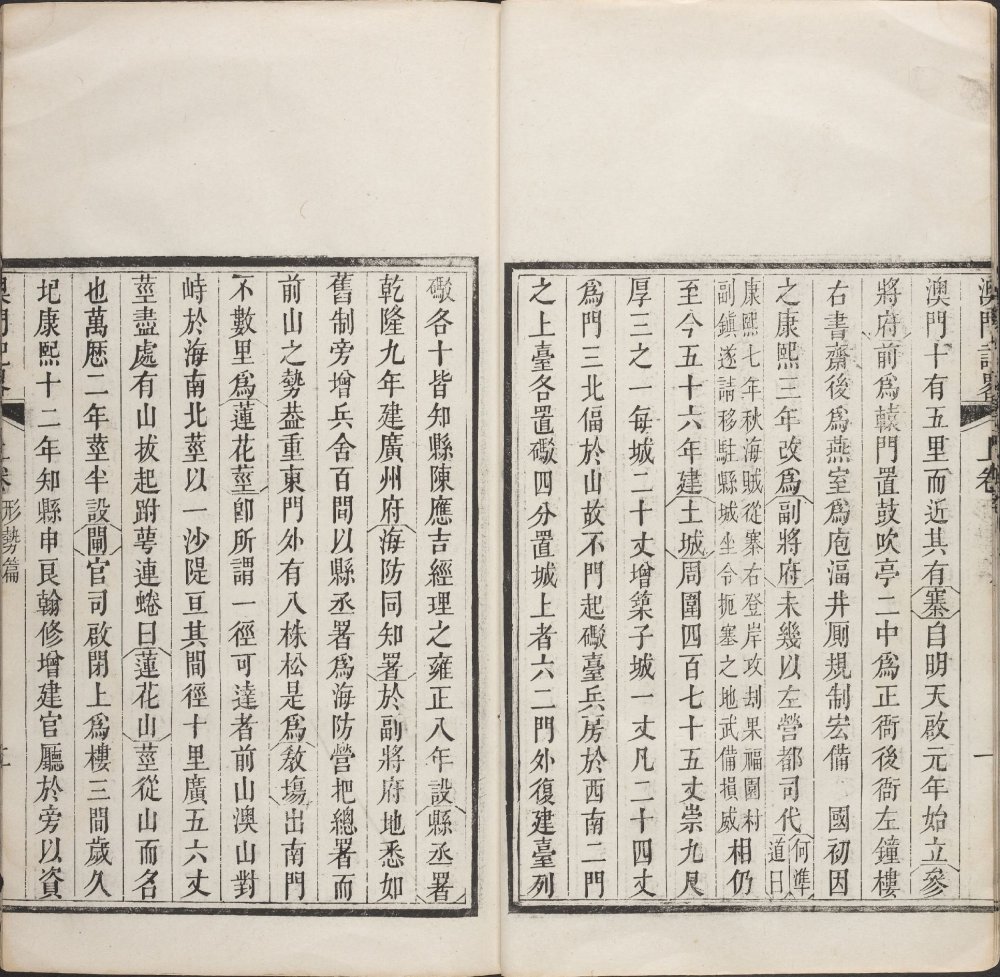 澳門記畧 上卷
澳門十有五里而近其有寨自明天啟元年始立參
將府前爲轅門置鼓吹亭二中爲正衙後衙左鐘樓
右書齋後爲燕室爲庖湢井厠規制宏備 國初因
之康熙三年改爲副將府未幾以左營都司代何準
道曰
康熙七年秋海賊從寨右登岸攻刦果福園村
副鎮遂請移駐縣城坐令扼塞之地武備損威
相仍
至今五十六年建土城周圍四百七十五丈崇九尺
厚三之一每城二十丈增築子城一丈凡二十四丈
爲門三北偪於山故不門起礮臺兵房於西南二門
之上臺各置礮四分置城上者六二門外復建臺列
礮各十皆知縣陳應吉經理之雍正八年設縣丞署
乾隆九年建廣州府海防同知署於副將府地悉如
舊制旁增兵舍百間以縣丞署爲海防營把總署而
前山之勢益重東門外有八株松是爲敎場出南門
不數里爲蓮花莖卽所謂一徑可達者前山澳山對
峙於海南北莖以一沙隄亘其間徑十里廣五六丈
莖盡處有山拔起跗萼連蜷曰蓮花山莖從山而名
也萬厯二年莖半設閘官司啟閉上爲樓三間歲久
圮康熙十二年知縣申良翰修增建官廳於旁以資
澳門記畧 上卷 形勢篇